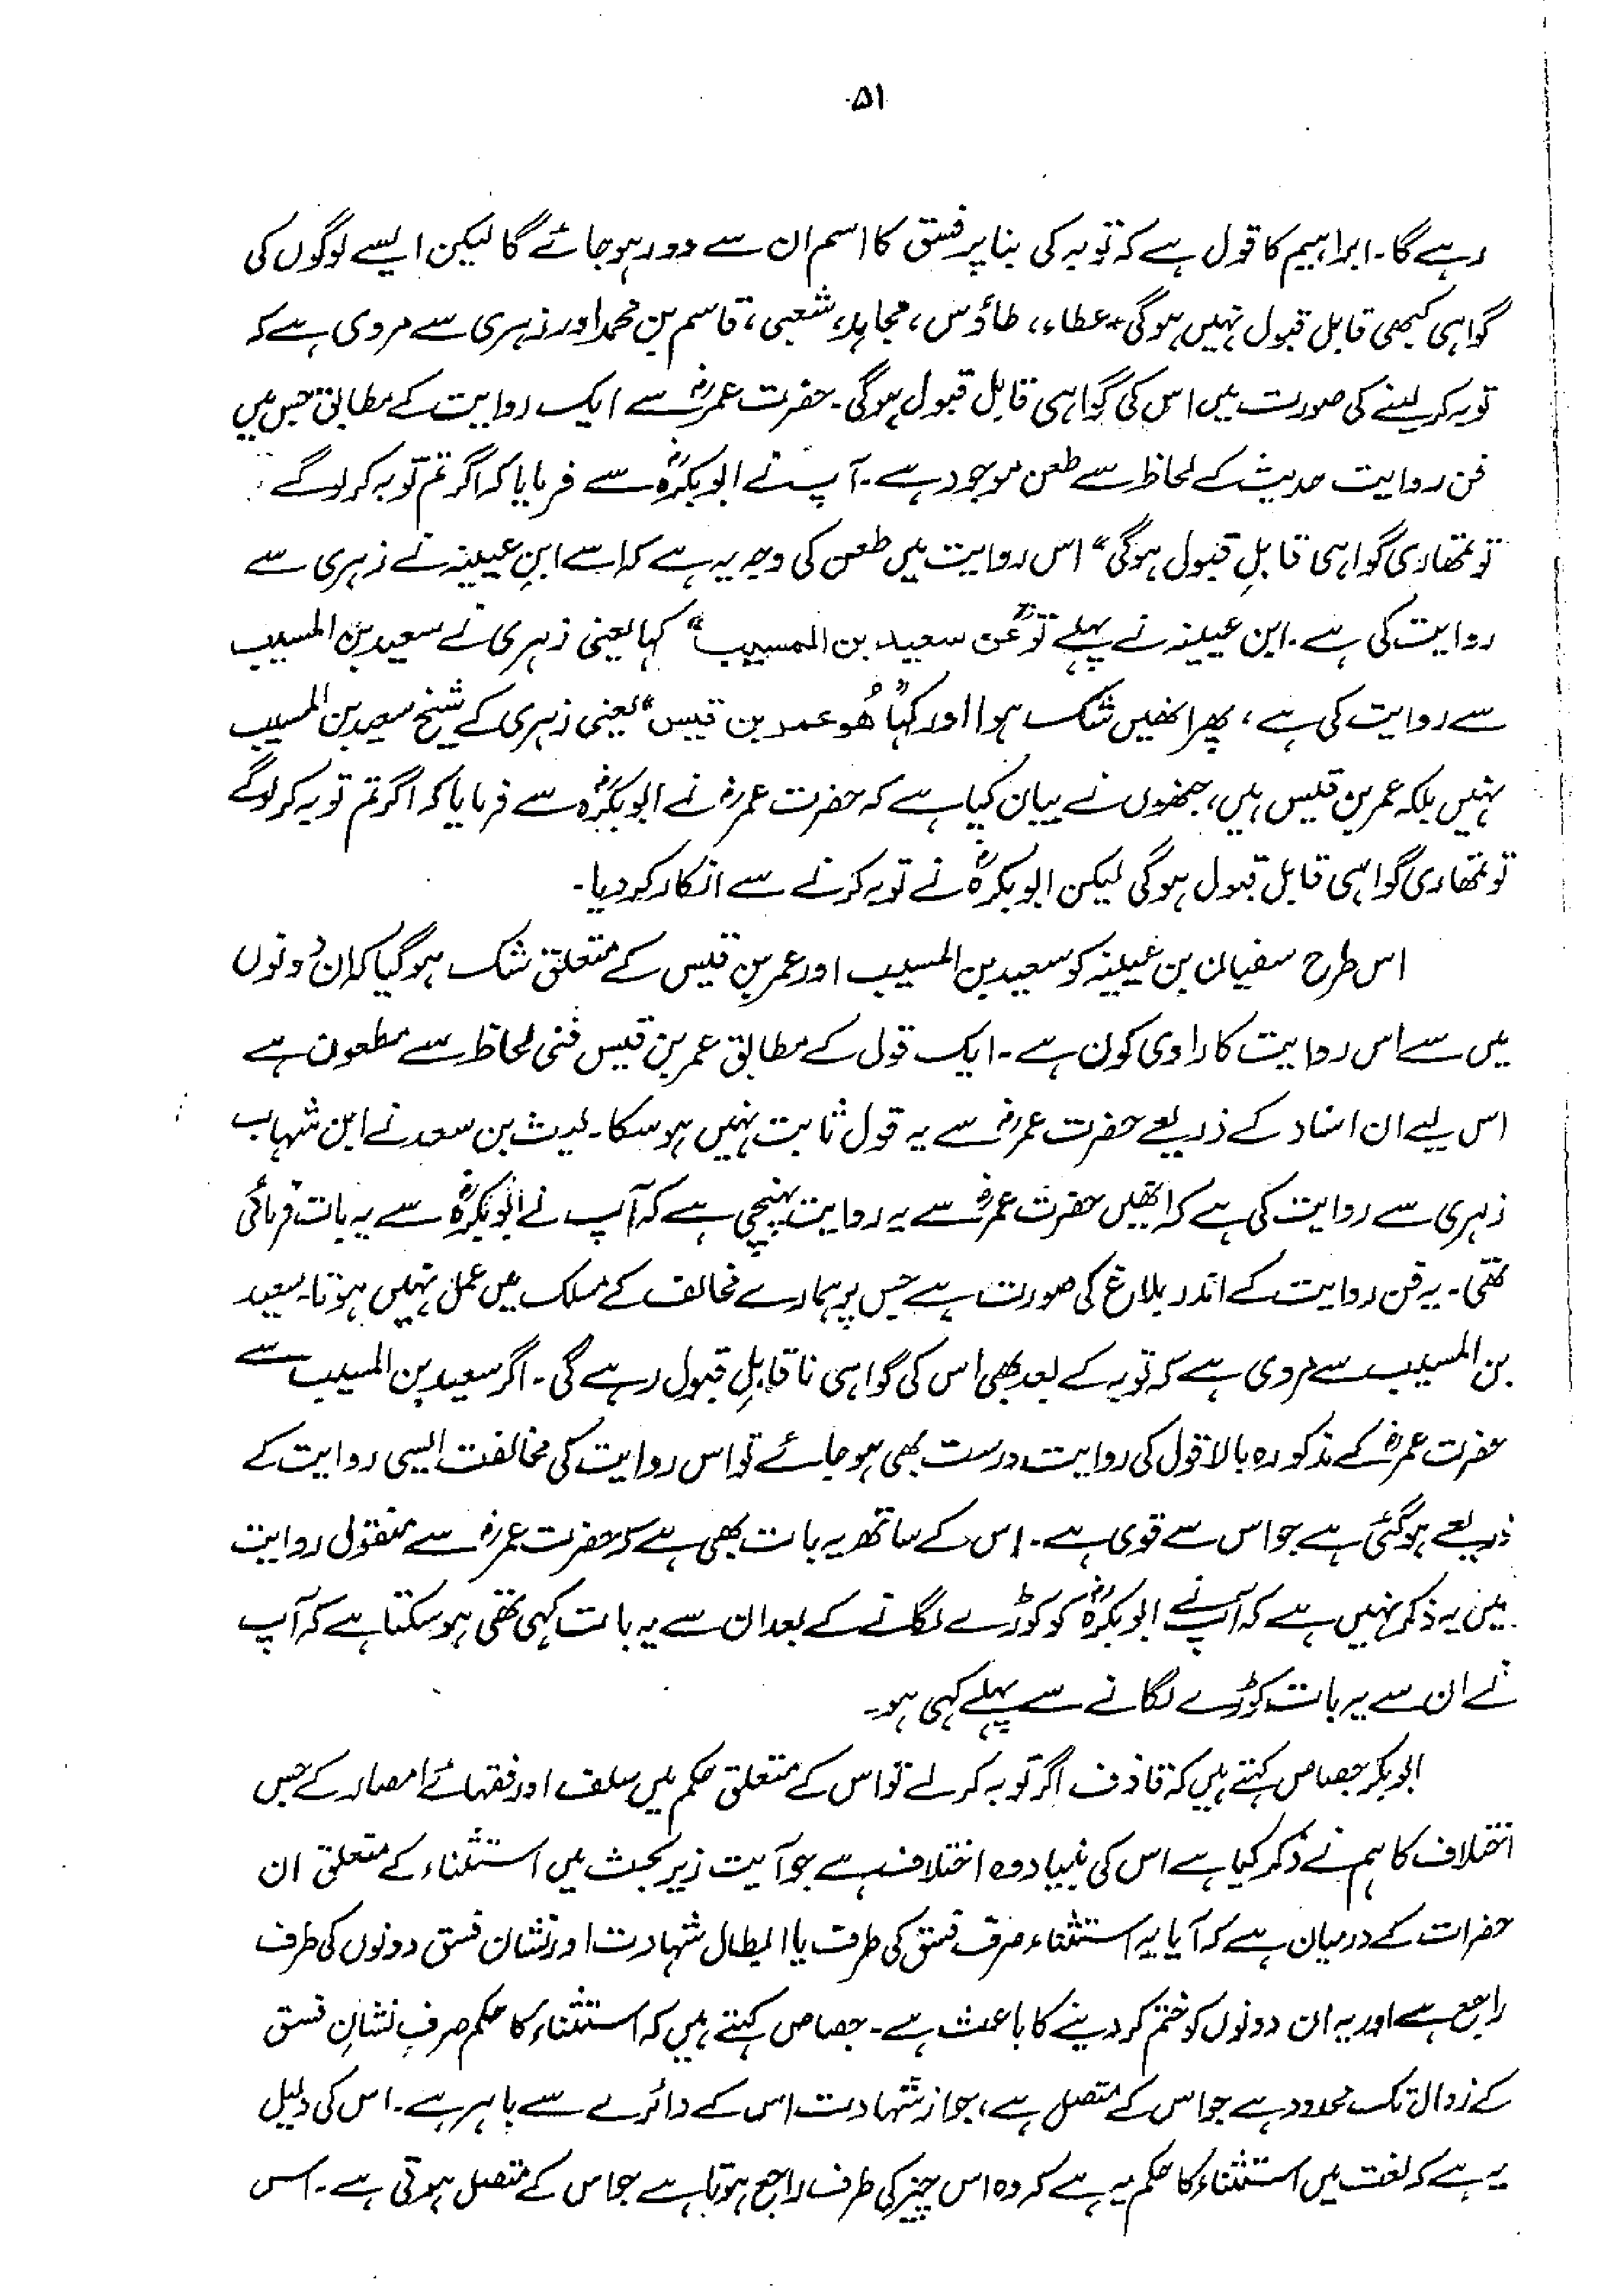 ۵۱
رہے گا۔ ابراہیم کا قول ہے کہ توبہ کی بنا پر فسق کا اسم ان سے دور ہو جائے گا لیکن ایسے لوگوں کی
گواہی کبھی قابل قبول نہیں ہوگی۔ عطاء، طاؤس، مجاہد، شعبی، قاسم بن محمد اور زہری سے مروی ہے کہ
توبہ کر لینے کی صورت میں اس کی گواہی قابل قبول ہوگی۔ حضرت عمرؓ سے ایک روایت کے مطابق جس میں
فن روایت حدیث کے لحاظ سے طعن موجود ہے۔ آپ نے ابوبکرہؓ سے فرمایا کہ اگر تم توبہ کر لوگے
تو تمھاری گواہی قابلِ قبول ہوگی" اس روایت میں طعن کی وجہ یہ ہے کہ اسے ابن عیینہ نے زہری سے
روایت کی ہے۔ ابن عیینہ نے پہلے تو "عن سعید بن المسیب" کہا یعنی زہری نے سعید بن المسیب
سے روایت کی ہے، پھر انھیں شک ہوا اور کہا "ھُو عمر بن قیس" یعنی زہری کے شیخ سعید بن المسیب
نہیں بلکہ عمر بن قیس ہیں، جنھوں نے بیان کیا ہے کہ حضرت عمرؓ نے ابوبکرہؓ سے فرمایا کہ اگر تم توبہ کر لوگے
تو تمھاری گواہی قابل قبول ہوگی لیکن ابوبکرہؓ نے توبہ کرنے سے انکار کر دیا۔
اس طرح سفیان بن عیینہ کو سعید بن المسیب اور عمر بن قیس کے متعلق شک ہو گیا کہ ان دونوں
میں سے اس روایت کا راوی کون ہے۔ ایک قول کے مطابق عمر بن قیس فنی لحاظ سے مطعون ہے
اس لیے ان اسناد کے ذریعے حضرت عمرؓ سے یہ قول ثابت نہیں ہو سکا۔ لیث بن سعد نے ابن شہاب
زہری سے روایت کی ہے کہ انھیں حضرت عمرؓ سے یہ روایت پہنچی ہے کہ آپ نے ابوبکرہؓ سے یہ بات فرمائی
تھی۔ یہ فن روایت کے اندر بلاغ کی صورت ہے جس پر ہمارے مخالف کے مسلک میں عمل نہیں ہوتا۔ سعید
بن المسیب سے مروی ہے کہ توبہ کے بعد بھی اس کی گواہی ناقابلِ قبول رہے گی۔ اگر سعید بن المسیب سے
حضرت عمرؓ کے مذکورہ بالا قول کی روایت درست بھی ہو جائے تو اس روایت کی مخالفت ایسی روایت کے
ذریعے ہوگئی ہے جو اس سے قوی ہے۔ اس کے ساتھ یہ بات بھی ہے کہ حضرت عمرؓ سے منقول روایت
میں یہ ذکر نہیں ہے کہ آپ نے ابوبکرہؓ کو کوڑے لگانے کے بعد ان سے یہ بات کہی تھی ہو سکتا ہے کہ آپ
نے ان سے یہ بات کوڑے لگانے سے پہلے کہی ہو۔
ابوبکر جصاص کہتے ہیں کہ قاذف اگر توبہ کر لے تو اس کے متعلق حکم میں سلف اور فقہائے امصار کے جس
اختلاف کا ہم نے ذکر کیا ہے اس کی بنیاد وہ اختلاف ہے جو آیت زیر بحث میں استثناء کے متعلق ان
حضرات کے درمیان ہے کہ آیا یہ استثناء صرف فسق کی طرف یا ابطال شہادت اور نشان فسق دونوں کی طرف
راجع ہے اور یہ ان دونوں کو ختم کر دینے کا باعث ہے۔ جصاص کہتے ہیں کہ استثناء کا حکم صرف نشانِ فسق
کے زوال تک محدود ہے جو اس کے متصل ہے، جواز شہادت اس کے دائرے سے باہر ہے۔ اس کی دلیل
یہ ہے کہ لغت میں استثناء کا حکم یہ ہے کہ وہ اس چیز کی طرف راجع ہوتا ہے جو اس کے متصل ہوتی ہے۔ اس